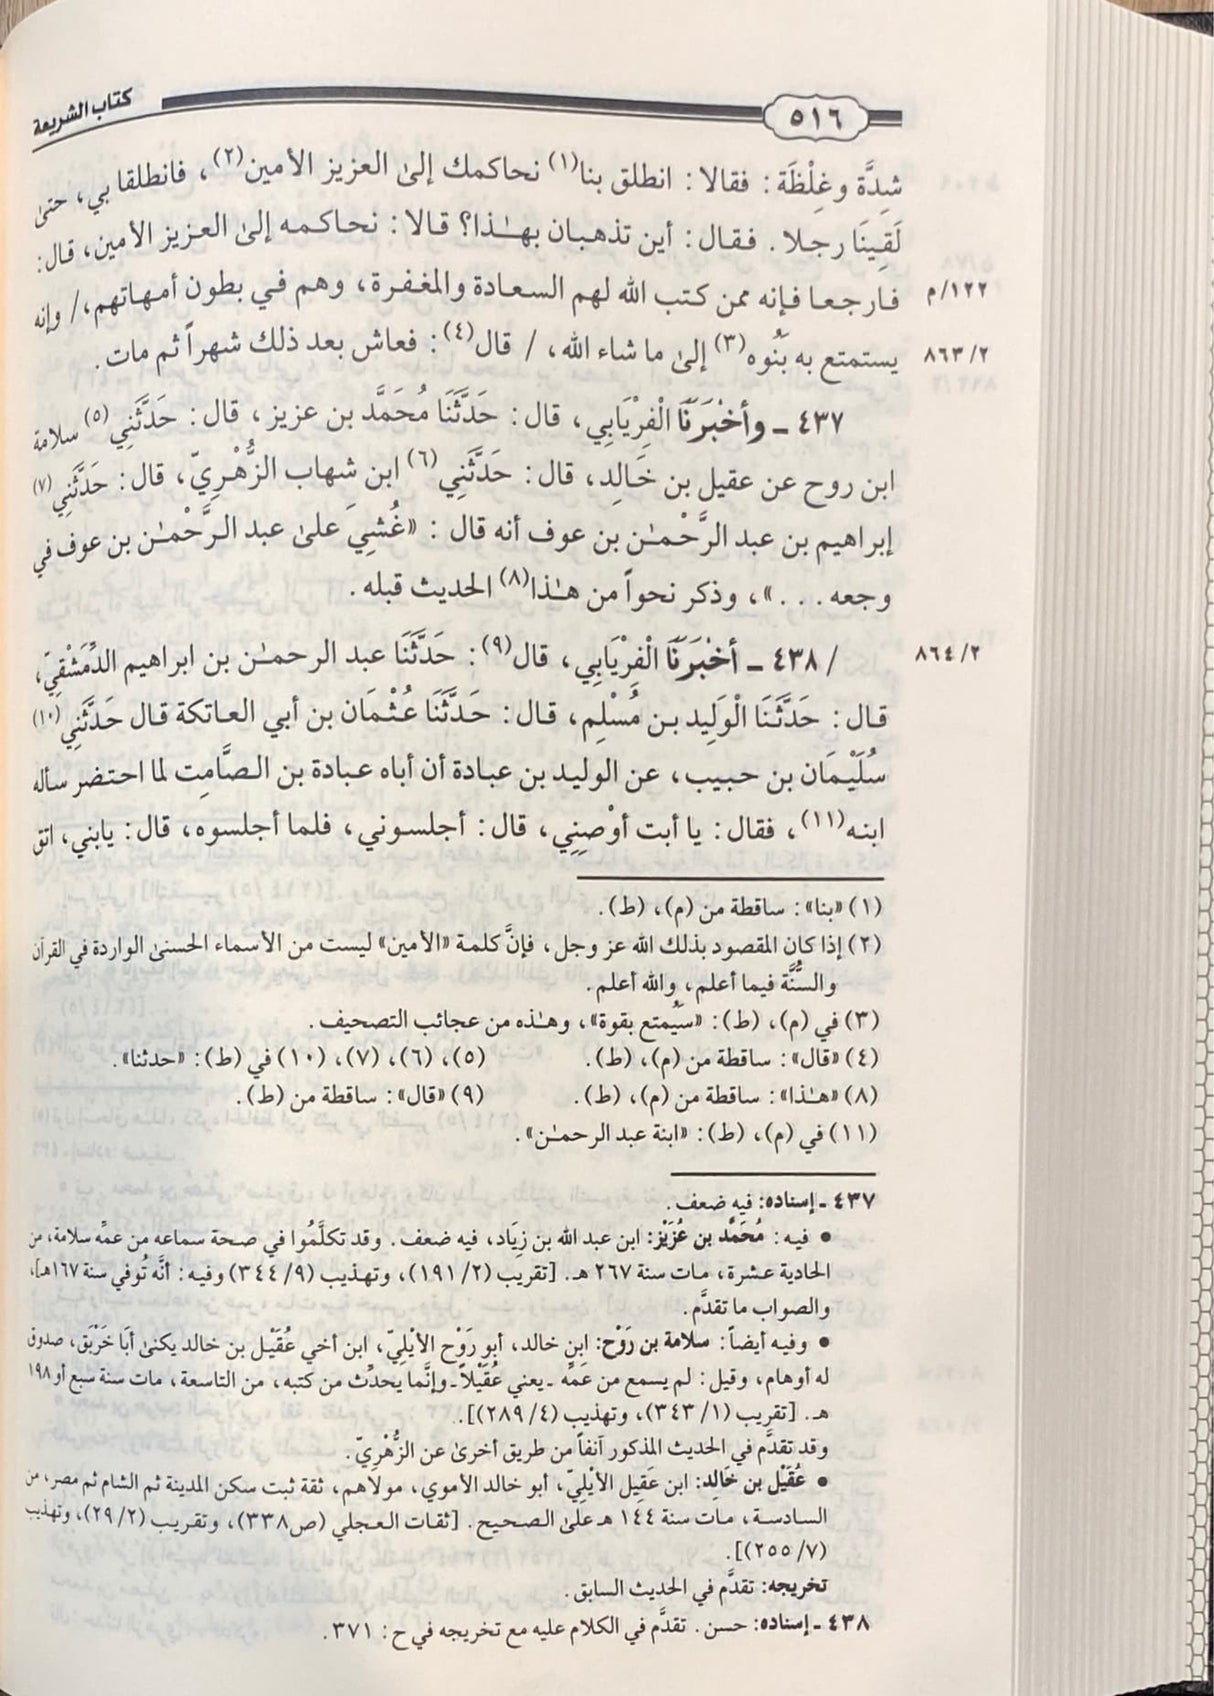 كتاب الشريعة
٥١٦
شِدَّة وغِلْظَة: فقالا: انطلق بنا(١) نحاكمك إلىٰ العزيز الأمين(٢)، فانطلقا بي، حتىٰ
لَقِينَا رجلا. فقال: أين تذهبان بهـٰذا؟ قالا: نحاكمه إلىٰ العزيز الأمين، قال:
١٢٢/م
فارجعا فإنه ممن كتب الله لهم السعادة والمغفرة، وهم في بطون أمهاتهم،/ وإنه
٨٦٣/٢
يستمتع به بَنُوه(٣) إلىٰ ما شاء الله، / قال(٤): فعاش بعد ذلك شهراً ثم مات.
٤٣٧ ـ وأخْبَرَنَا الْفِرْيَابِي، قال: حَدَّثَنَا مُحَمَّد بن عزيز، قال: حَدَّثَنِي(٥) سلامة
ابن روح عن عقيل بن خَالِد، قال: حَدَّثَنِي(٦) ابن شهاب الزُّهْرِيّ، قال: حَدَّثَنِي(٧)
إبراهيم بن عبد الرَّحْمـٰن بن عوف أنه قال: «غُشِيَ علىٰ عبد الرَّحْمـٰن بن عوف في
وجعه...»، وذكر نحواً من هـٰذا(٨) الحديث قبله.
٨٦٤/٢
/ ٤٣٨ ـ أخْبَرَنَا الْفِرْيَابِي، قال(٩): حَدَّثَنَا عبد الرحمـٰن بن ابراهيم الدِّمَشْقِيّ،
قال: حَدَّثَنَا الْوَلِيد بن مُسْلِم، قال: حَدَّثَنَا عُثْمَان بن أبي العاتكة قال حَدَّثَنِي(١٠)
سُلَيْمَان بن حبيب، عن الوليد بن عبادة أن أباه عبادة بن الصَّامِت لما احتضر سأله
ابنه(١١)، فقال: يا أبت أوْصِنِي، قال: أجلسوني، فلما أجلسوه، قال: يابني، اتق
(١) «بنا»: ساقطة من (م)، (ط).
(٢) إذا كان المقصود بذلك الله عز وجل، فإنَّ كلمة «الأمين» ليست من الأسماء الحسنىٰ الواردة في القرآن
والسُّنَّة فيما أعلم، والله أعلم.
(٣) في (م)، (ط): «سَيُمتع بقوة»، وهـٰذه من عجائب التصحيف.
(٤) «قال»: ساقطة من (م)، (ط). (٥)، (٦)، (٧)، (١٠) في (ط): «حدثنا».
(٨) «هـٰذا»: ساقطة من (م)، (ط). (٩) «قال»: ساقطة من (ط).
(١١) في (م)، (ط): «ابنة عبد الرحمـٰن».
٤٣٧ ـ إسناده: فيه ضعف.
● فيه: مُحَمَّد بن عُزَيْز: ابن عبد الله بن زِيَاد، فيه ضعف. وقد تكلَّمُوا في صحة سماعه من عمِّه سلامة، من
الحادية عشرة، مات سنة ٢٦٧ هـ. [تقريب (١٩١/٢)، وتهذيب (٣٤٤/٩) وفيه: أنَّه تُوفي سنة ١٦٧هـ]،
والصواب ما تقدَّم.
● وفيه أيضاً: سلامة بن رَوْح: ابن خالد، أبو رَوْح الأيْلِيّ، ابن أخي عُقَيْل بن خالد يكنىٰ أبَا خَرْبَق، صدوق
له أوهام، وقيل: لم يسمع من عَمِّه ـ يعني عُقَيْلاً ـ وإنَّما يحدِّث من كتبه، من التاسعة، مات سنة سبع أو ١٩٨
هـ. [تقريب (٣٤٣/١)، وتهذيب (٢٨٩/٤)].
وقد تقدَّم في الحديث المذكور آنفاً من طريق أخرىٰ عن الزُّهْرِيّ.
● عُقَيْل بن خَالِد: ابن عَقِيل الأيْلِيّ، أبو خالد الأموي، مولاهم، ثقة ثبت سكن المدينة ثم الشام ثم مصر، من
السادسة، مات سنة ١٤٤ هـ علىٰ الصحيح. [ثقات العجلي (ص٣٣٨)، وتقريب (٢٩/٢)، وتهذيب
(٢٥٥/٧)].
تخريجه: تقدَّم في الحديث السابق.
٤٣٨ ـ إسناده: حسن. تقدَّم في الكلام عليه مع تخريجه في ح: ٣٧١.